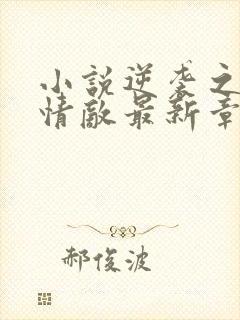 小說逆袭之
情敵最新章
郝俊波